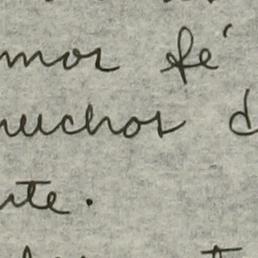 mos fé
muchos d
nte.